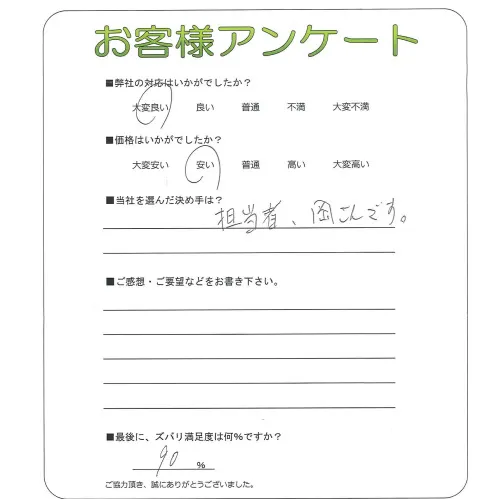 お客様アンケート
■弊社の対応はいかがでしたか？
大変良い 良い 普通 不満 大変不満
■価格はいかがでしたか？
大変安い 安い 普通 高い 大変高い
■当社を選んだ決め手は？
担当者、岡さんです。
■ご感想・ご要望などをお書き下さい。
■最後に、ズバリ満足度は何%ですか？
90 %
ご協力頂き、誠にありがとうございました。